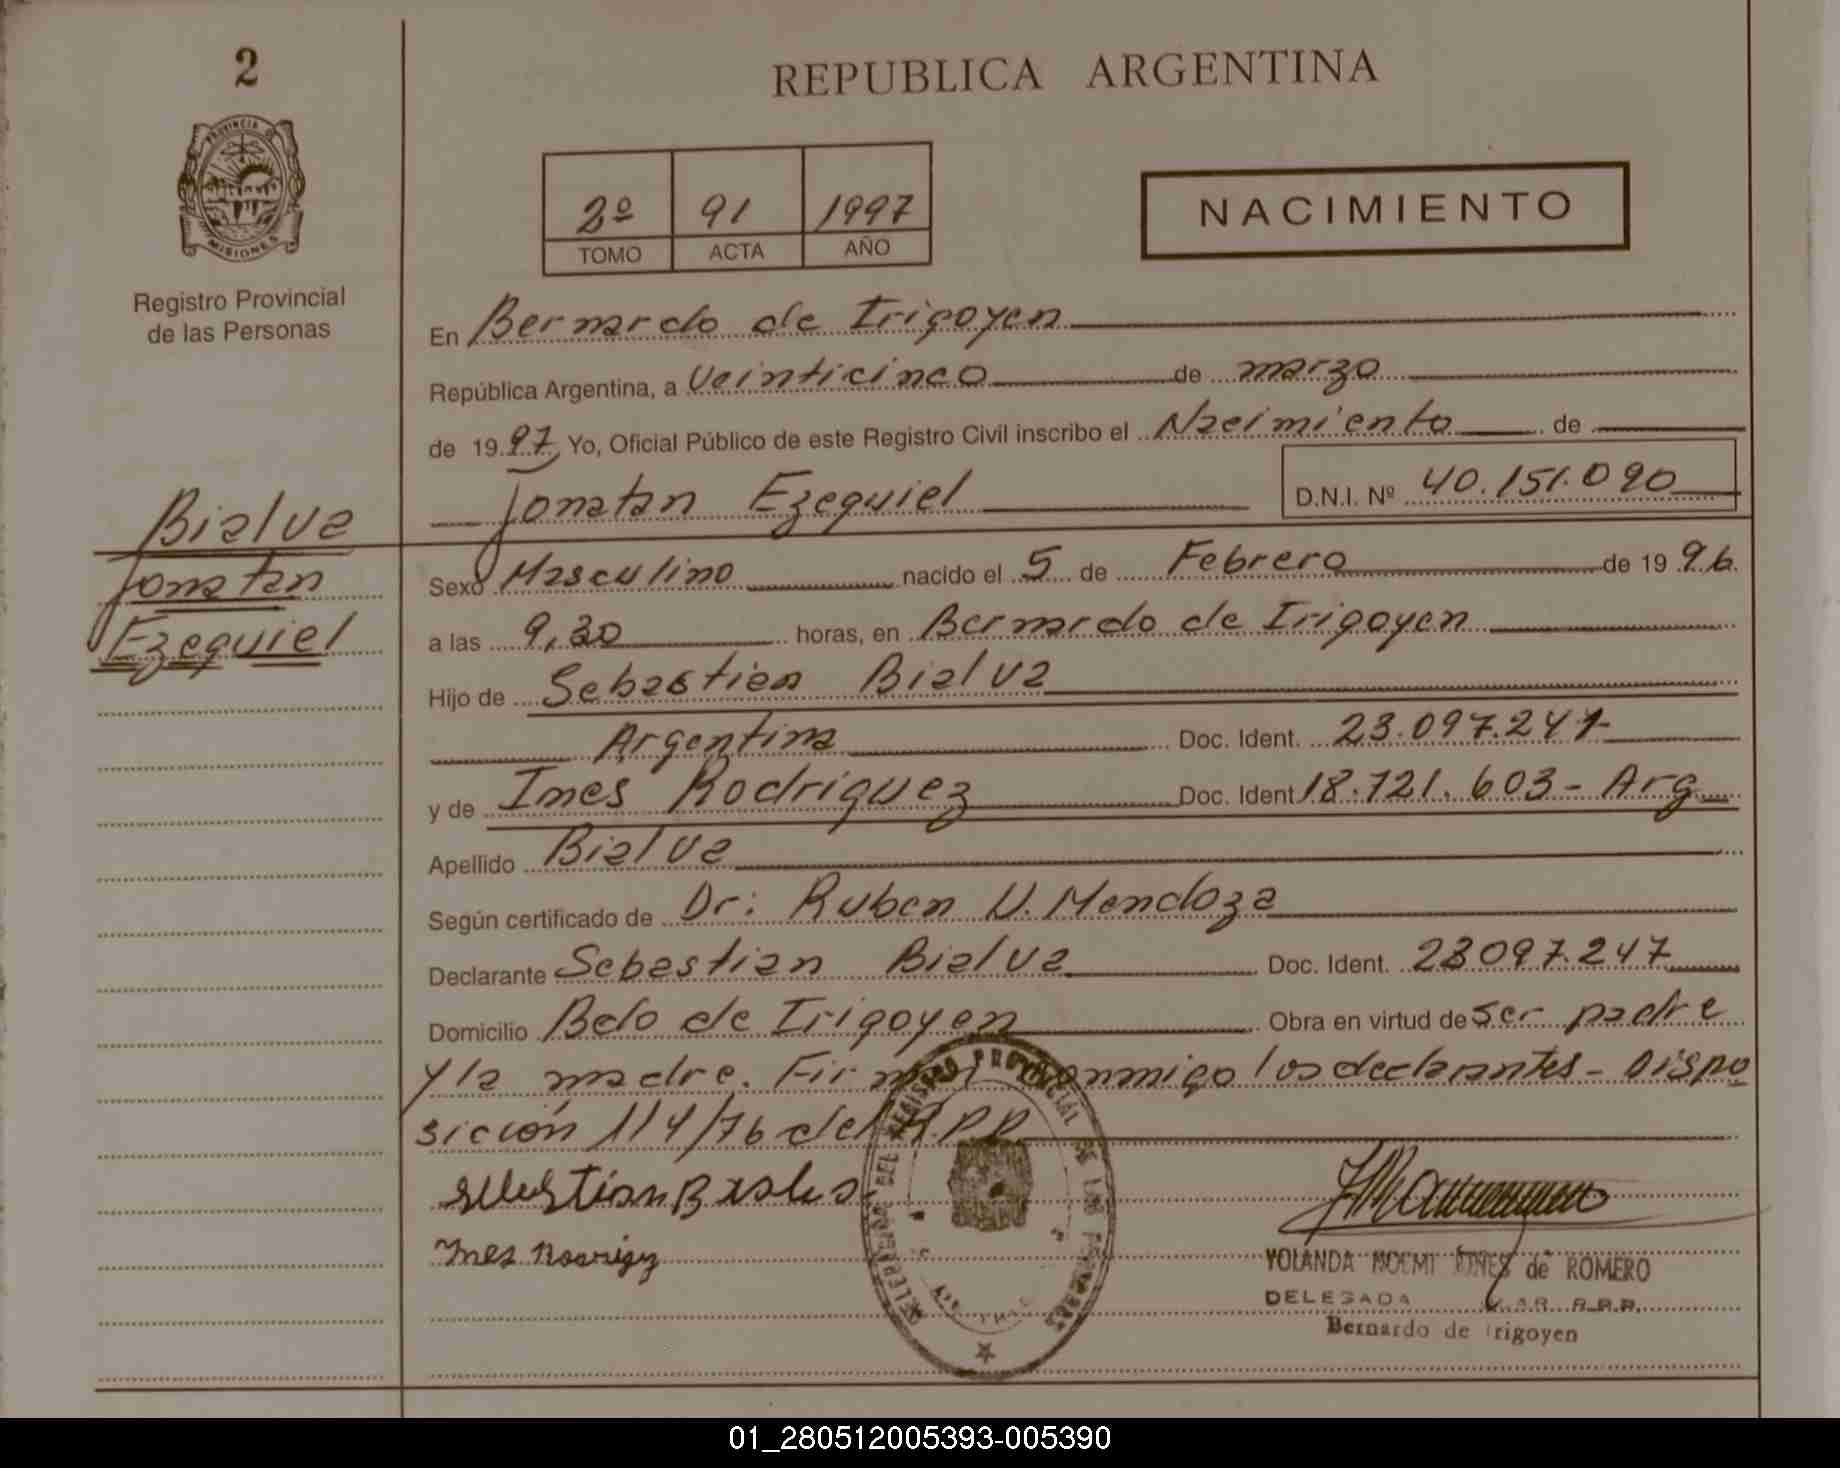 2
PROVINCIA DE
MISIONES
Registro Provincial
de las Personas
Bialva
Jonatan
Ezequiel
REPUBLICA ARGENTINA
2º 91 1997
TOMO ACTA AÑO
NACIMIENTO
En Bernardo de Irigoyen
República Argentina, a Veinticinco de marzo
de 1997 Yo, Oficial Público de este Registro Civil inscribo el Nacimiento de
Jonatan Ezequiel D.N.I. Nº 40.151.090
Sexo Masculino nacido el 5 de Febrero de 1996
a las 9,30 horas, en Bernardo de Irigoyen
Hijo de Sebastian Bialva
Argentina Doc. Ident. 23.097.247
y de Ines Rodriguez Doc. Ident 18.721.603 - Arg
Apellido Bialva
Según certificado de Dr: Ruben U. Mendoza
Declarante Sebastian Bialva Doc. Ident. 23097.247
Domicilio Bdo de Irigoyen Obra en virtud de ser padre
y la madre. Firman conmigo los declarantes - Dispo
sición 114/76 del R.P.P.
REGISTRO PROVINCIAL DE LAS PERSONAS
YOLANDA NOEMI de ROMERO
DELEGADA R.P.P.
Bernardo de Irigoyen
01_280512005393-005390